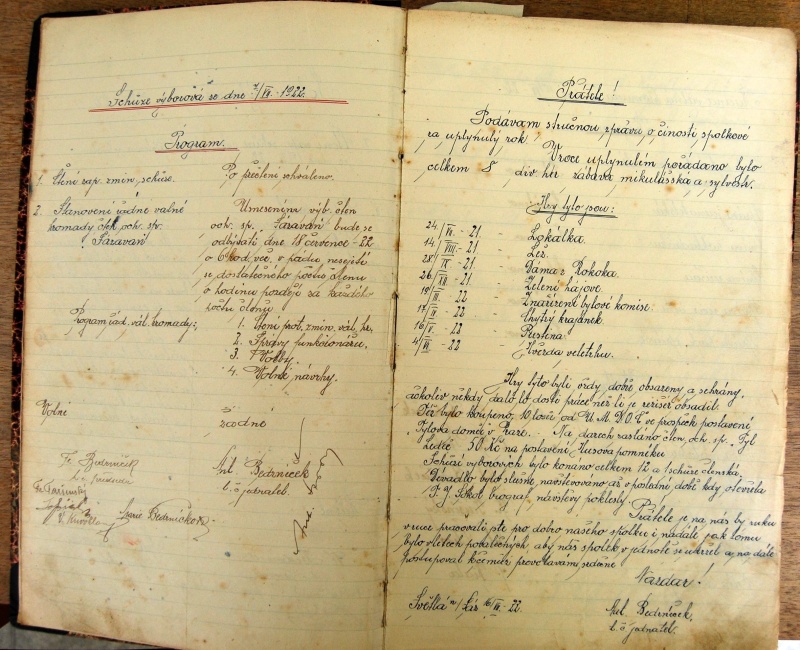 Schůze výborová ze dne 7/VII. 1922.
Program.
1. Čtení zap. zmin. schůze.
Po přečtení schváleno.
2. Stanovení řádné valné
hromady čtek. och. sp.
"Šaravan"
Usnesením výb. člen
och. sp. "Šaravan" bude se
odbývati dne 18 července - 22
o 6 hod. več. v pádu, nesejití
se dostatečného počtu členu
o hodinu později za každéh.
počtu členů
Program řád. val. hromady:
1. Čtení prot. zmin. val. hr.
2. Zprávy funkcionářů.
3. Volby.
4. Volné návrhy.
Volné
žádné
Fr. Bedrníček
t. č. předseda
Ant. Bedrníček
t. č. jednatel.
Marie Bedrníčkova
Přátele!
Podávam stručnou zprávu o činosti spolkové
za uplynulý rok. V roce uplynulem pořádano bylo
celkem 8 div. her zábava mikulašská a sylvestr.
Hry tyto jsou:
24/VI. - 21. Lokálka.
14/VIII. - 21. Lež.
28/IX - 21. Dáma z Rokoka.
26/XII. - 21. Zelení hájove.
19/II - 22 Znařízení bytové komise.
17/IV - 22 Chytrý krajánek.
16/V. - 22 Pustina.
4/VI - 22 Hvězda veletrhu.
Hry tyto byli vždy dobře obsazeny a sehrány.
ačkoliv někdy dalo to dosti práce než li je režisér obsadil.
Též bylo koupeno, 10 losů od Ú. M. D. O. Č. ve prospěch postavení
"Tylova domu" v Praze. Na darech zasláno člen. och. sp. "Tyl"
Ledeč 50 Kč na postavení "Husova pomníku
Schůzí výborových bylo konáno celkem 12 a 1 schůze členská.
Divadlo bylo slušně navštěvováno, až v poslední době kdy otevřela
T. J. Sokol biograf, návštěvy poklesly.
Přátele je na nás by ruku
v ruce pracovali jste pro dobro našeho spolku i nadále jak tomu
bylo v létech pobalečných, aby nás spolek v jednotě se udržel a na dále
postupoval k směru provolávám srdečné
Nazdar!
Světlá n/Sáz. 16/VII. - 22.
Ant. Bedrníček,
t. č. jednatel.